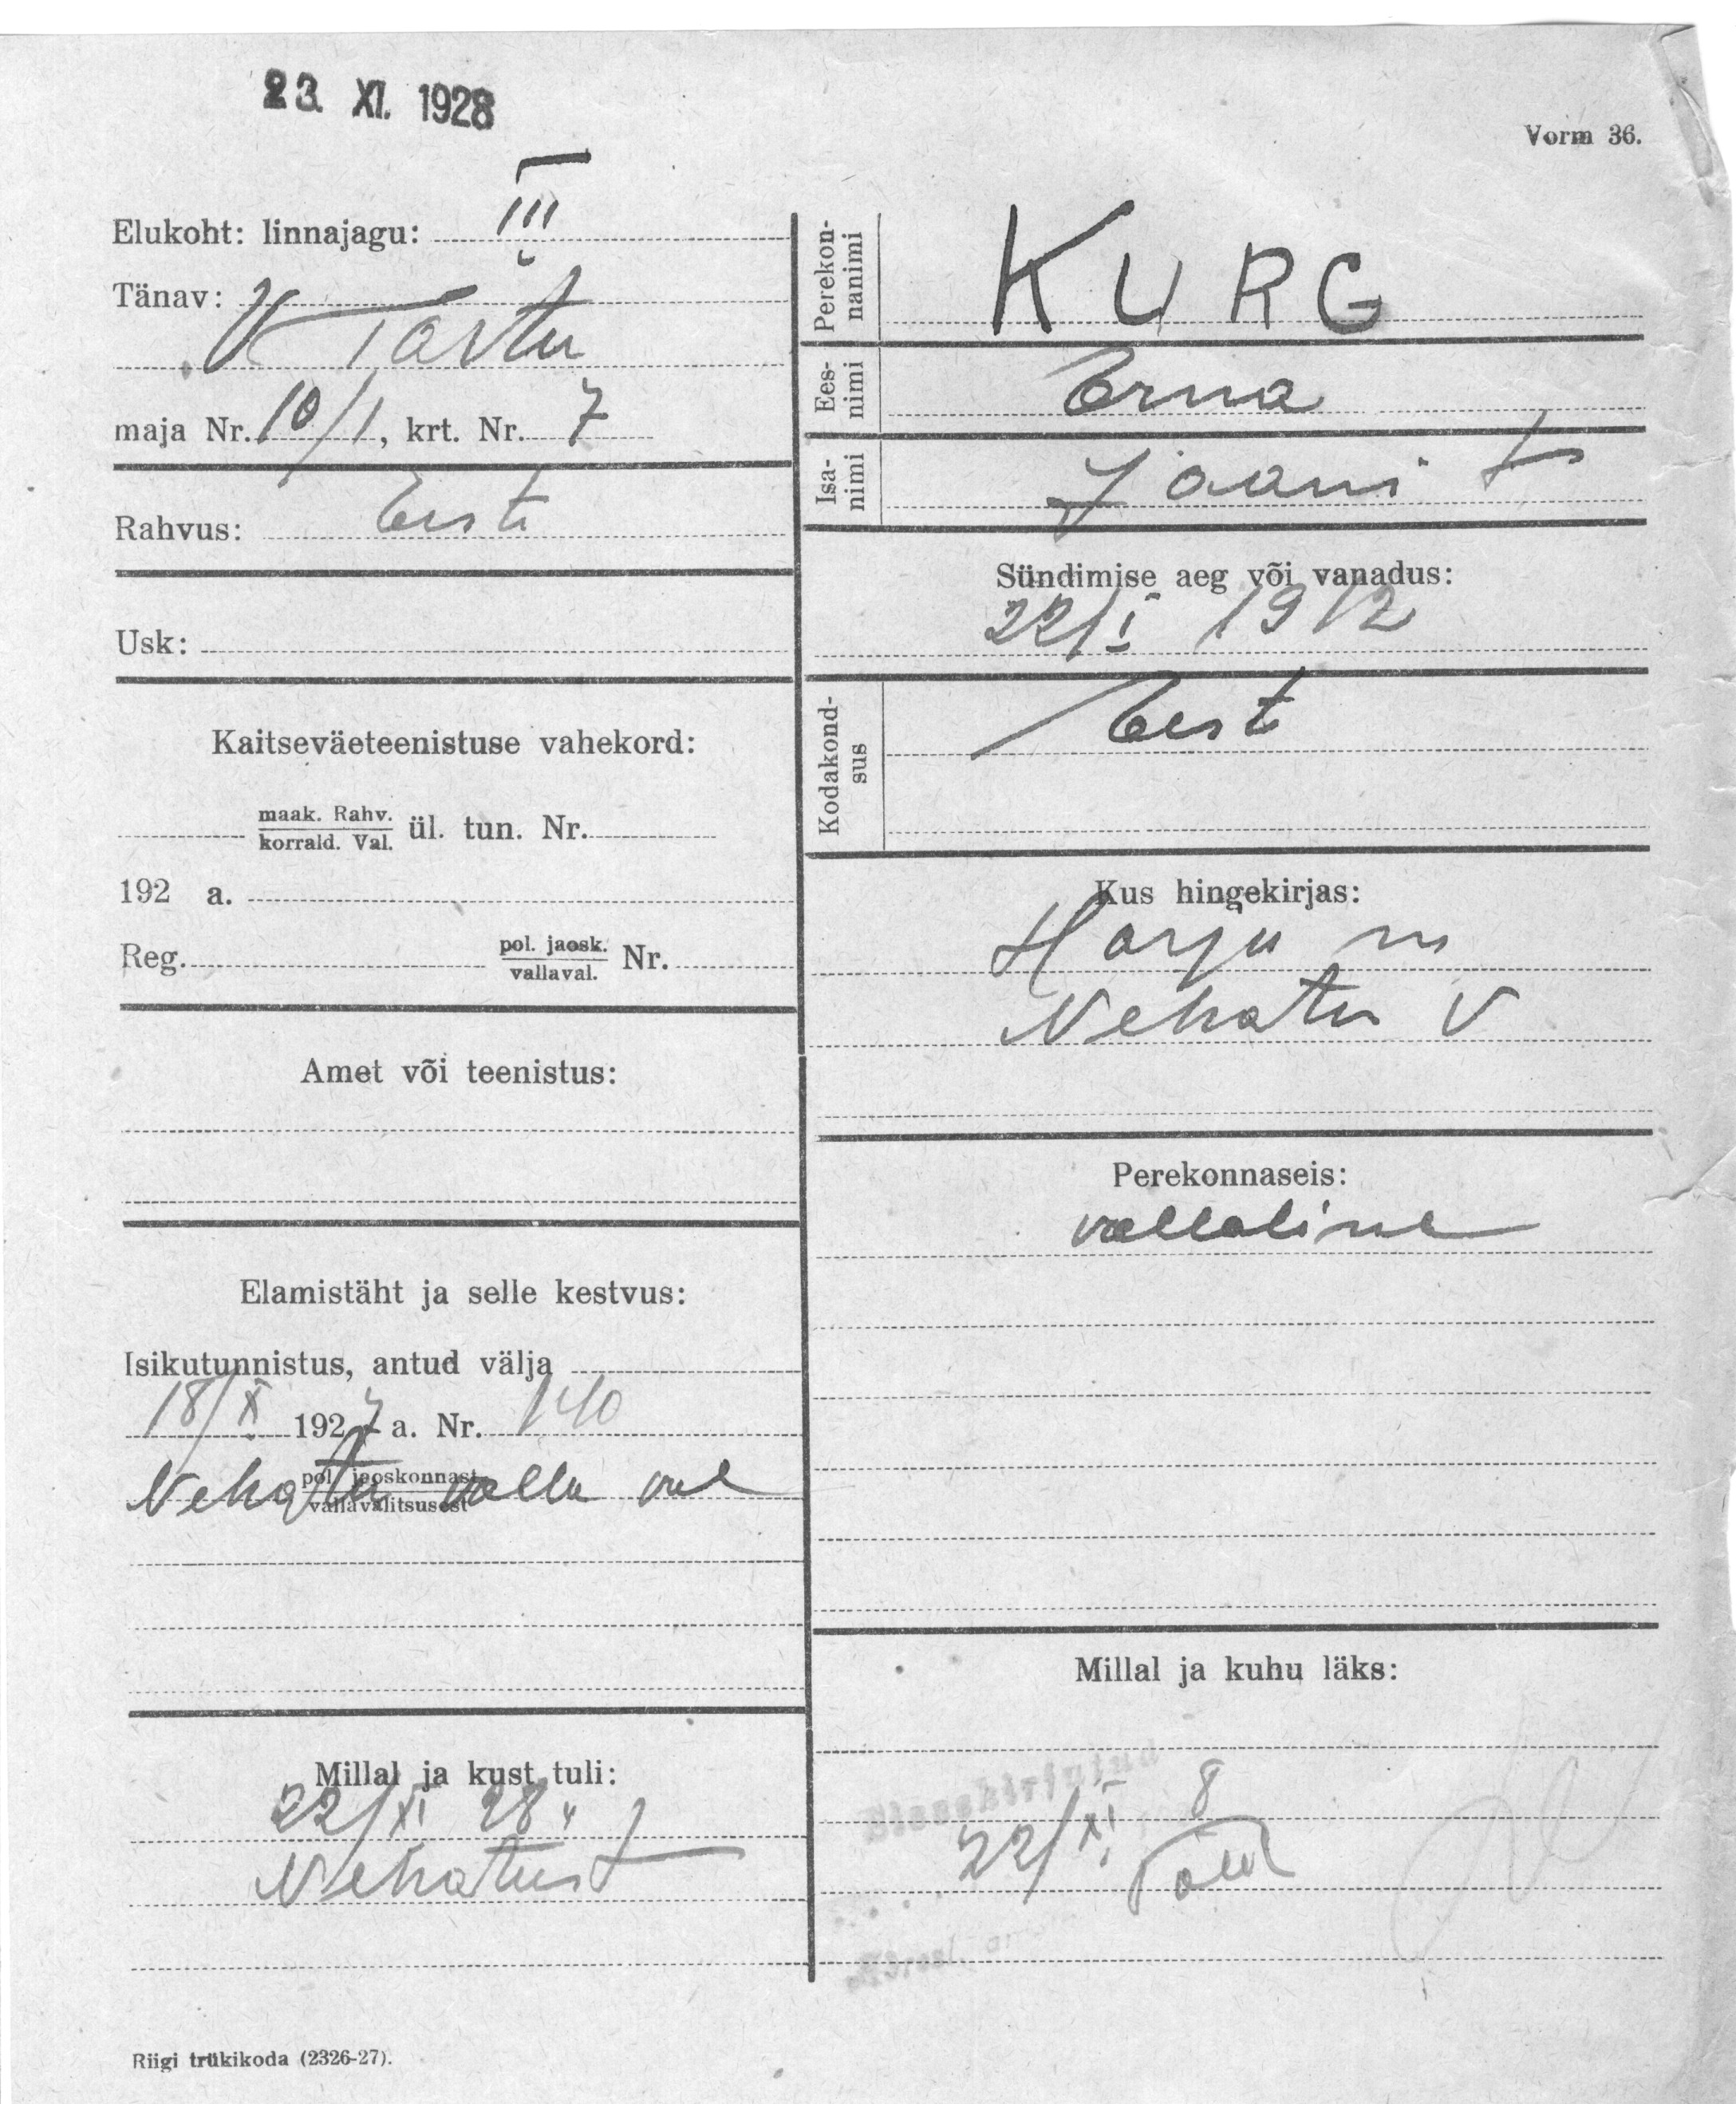 23. XI. 1928
Vorm 36.
Elukoht: linnajagu: III
Tänav:
V Tartu
maja Nr. 10/1, krt. Nr. 7
Rahvus: Eesti
Usk:
Kaitseväeteenistuse vahekord:
maak. Rahv. korrald. Val. ül. tun. Nr.
192 a.
Reg. pol. jaosk. vallaval. Nr.
Amet või teenistus:
Elamistäht ja selle kestvus:
Isikutunnistus, antud välja
18/X 1927 a. Nr. 140
pol. jaoskonnast
Nehatu valla val
vallavalitsusest
Millal ja kust tuli:
22/XI 28
Nehatust
Perekonnanimi KURG
Eesnimi Erna
Isanimi Jaani t
Sündimise aeg või vanadus:
22/I 1912
Kodakondsus Eesti
Kus hingekirjas:
Harju m
Nehatu v
Perekonnaseis:
vallaline
Millal ja kuhu läks:
Sissekirjutud
22/XI 8
Riigi trükikoda (2326-27).